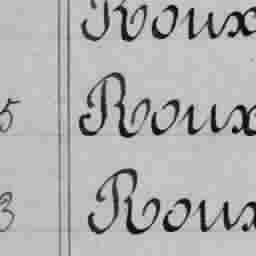 Roux
5 Roux
3 Roux